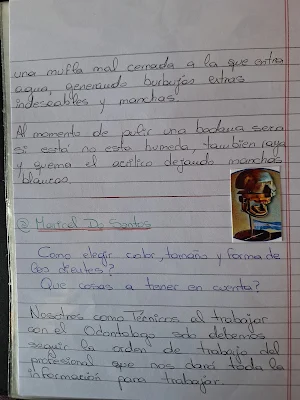 una mufla mal cerrada a la que entra
agua, generando burbujas extras
indeseables y manchas.
Al momento de pulir una badana seca
si está no esta humeda, tambien raya
y quema el acrílico dejando manchas
blancas.
@ Maricel D. Santos
Como elegir color, tamaño y forma de
los dientes?
Que cosas a tener en cuenta?
Nosotros como Técnicos al trabajar
con el Odontologo solo debemos
seguir la orden de trabajo del
profesional que nos dará toda la
información para trabajar.